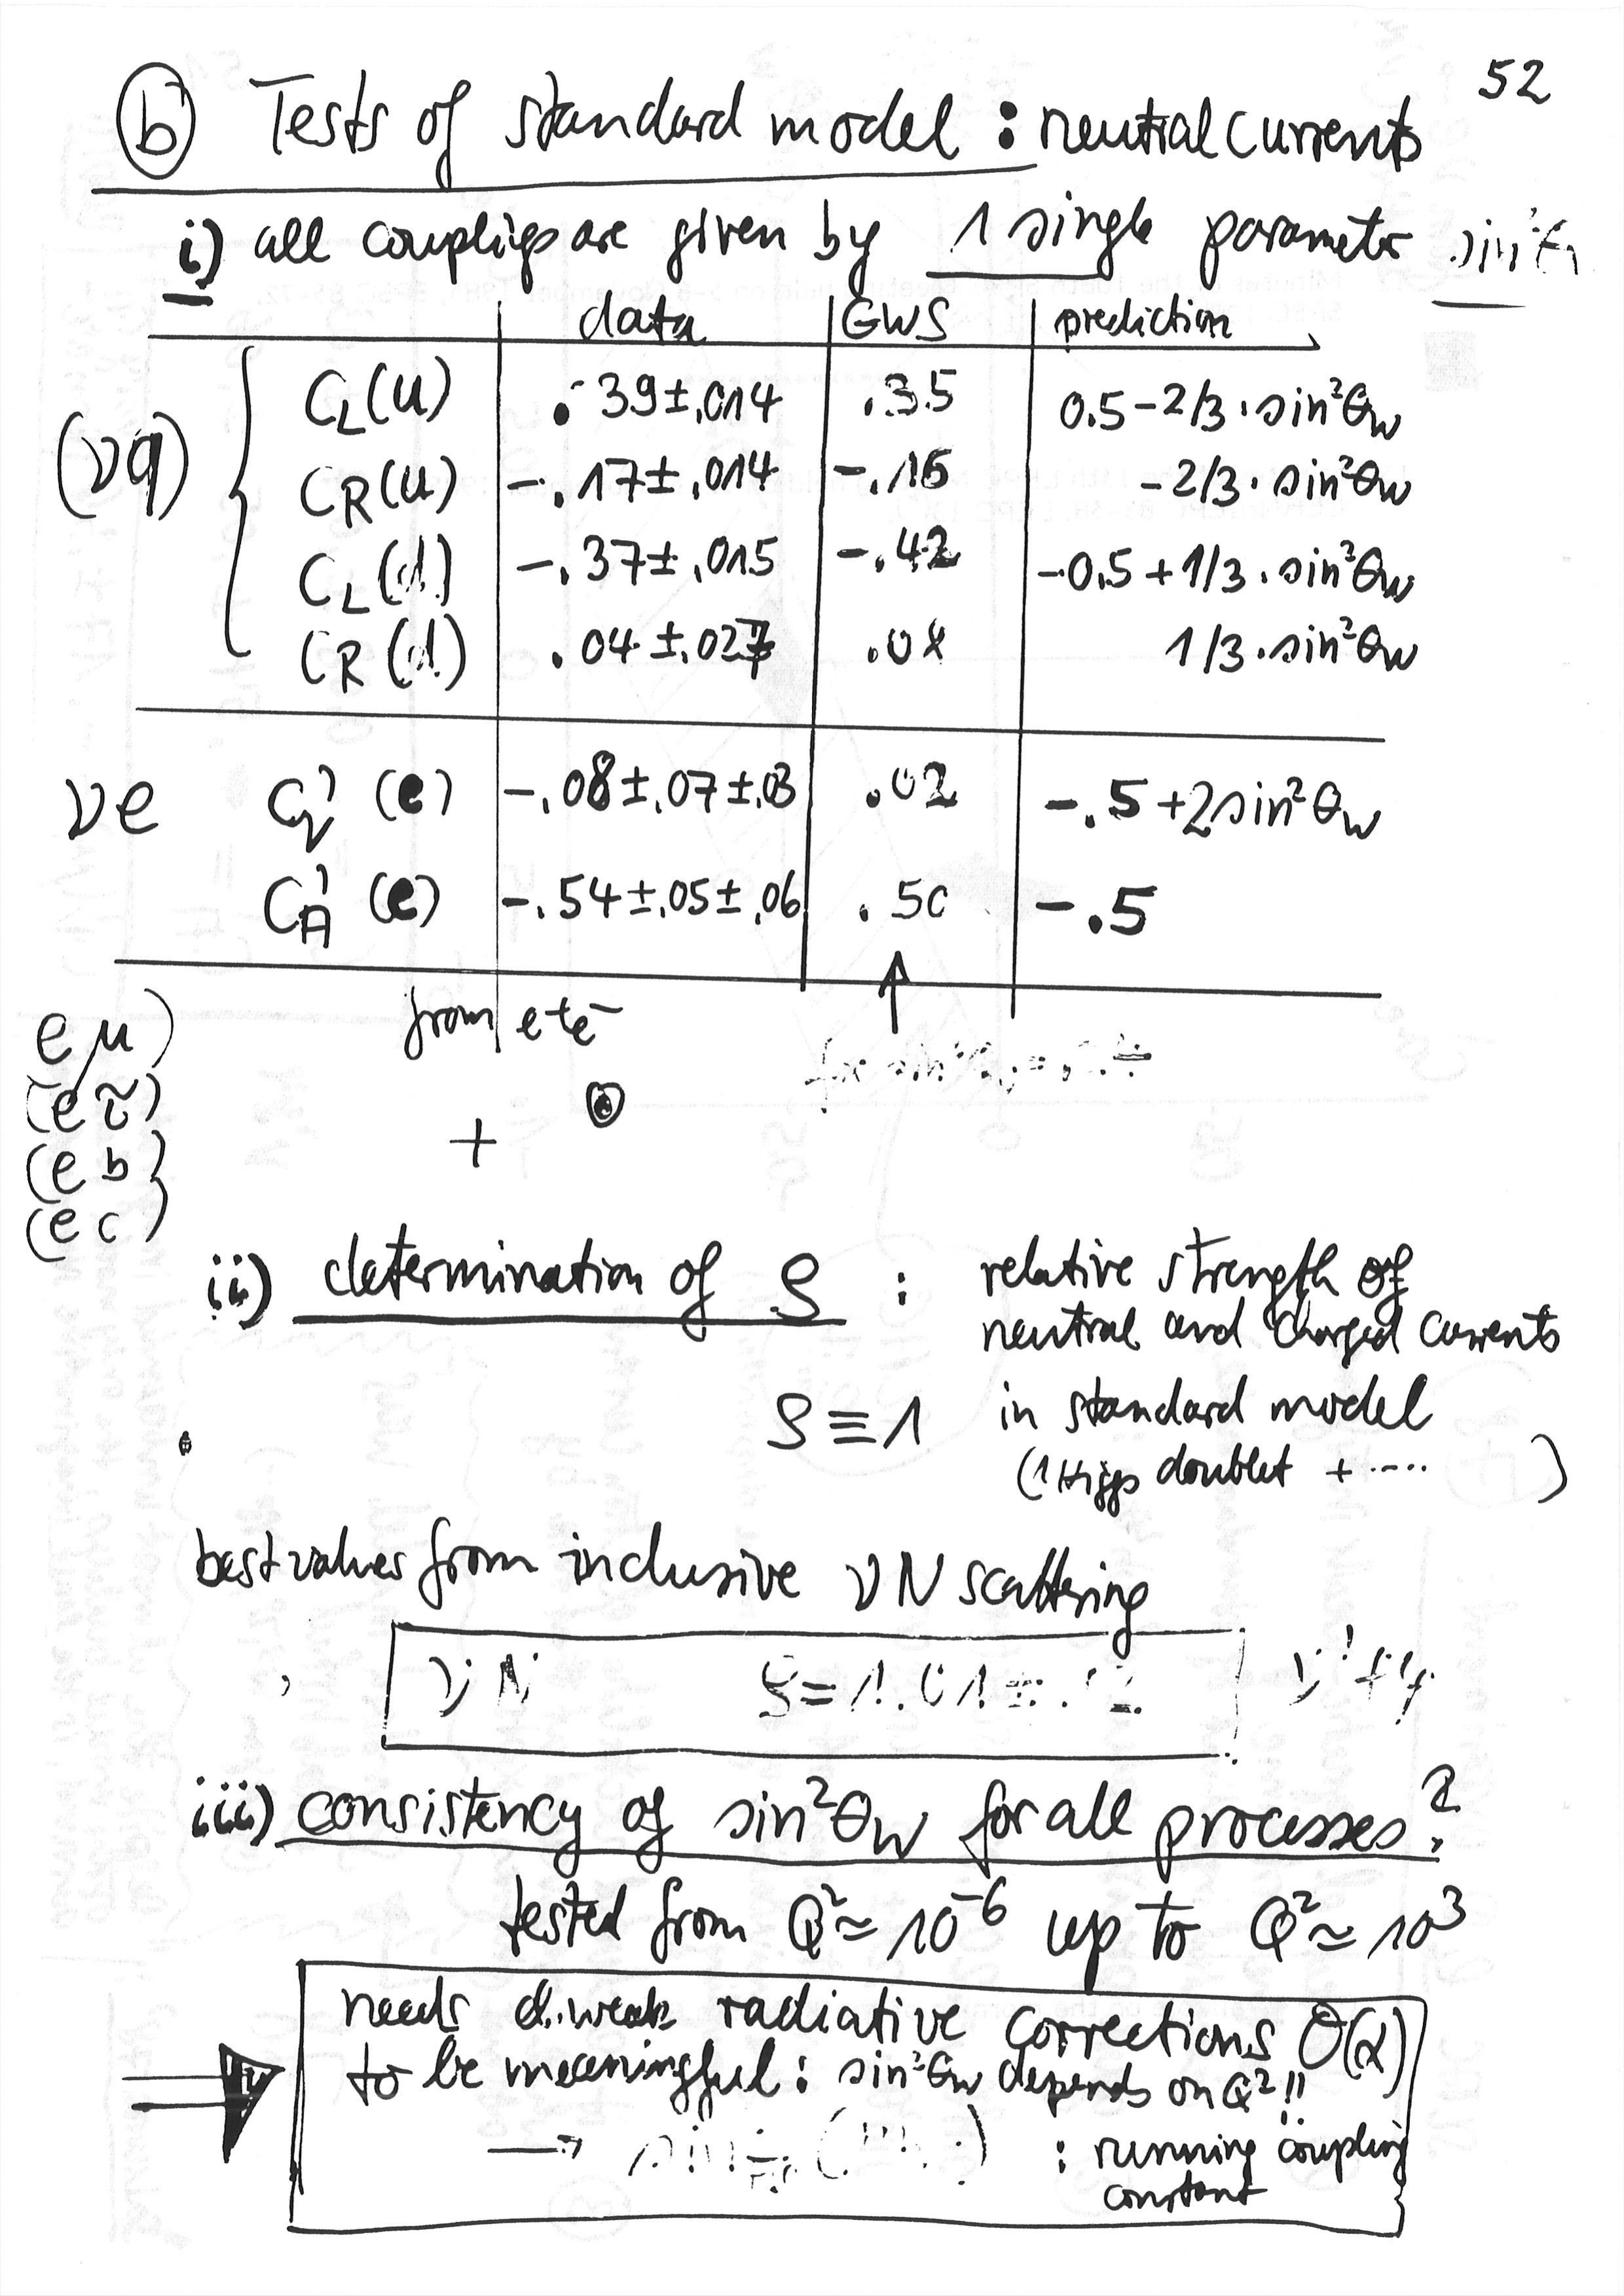 52
b Tests of standard model : neutral currents
i) all couplings are given by 1 single parameter sin²θ
data GWS prediction
(νq)
C_L(u) .39±.014 .35 0.5-2/3·sin²θ_W
C_R(u) -.17±.014 -.16 -2/3·sin²θ_W
C_L(d) -.37±.015 -.42 -0.5+1/3·sin²θ_W
C_R(d) .04±.027 .08 1/3·sin²θ_W
νe C_V' (e) -.08±.07±.03 .02 -.5+2sin²θ_W
C_A' (e) -.54±.05±.06 .50 -.5
↑
from e+e-
eμ)
(eτ)
(e b)
(e c)
+
ii) determination of ρ : relative strength of
neutral and charged currents
ρ≡1 in standard model
(1 Higgs doublet + .... )
best values from inclusive νN scattering
νN ρ=1.01±
iii) consistency of sin²θ_W for all processes?
tested from Q²≃10⁻⁶ up to Q²≃10³
needs weak radiative corrections O(α)
to be meaningful: sin²θ_W depends on Q²!!
→ : running coupling
constant